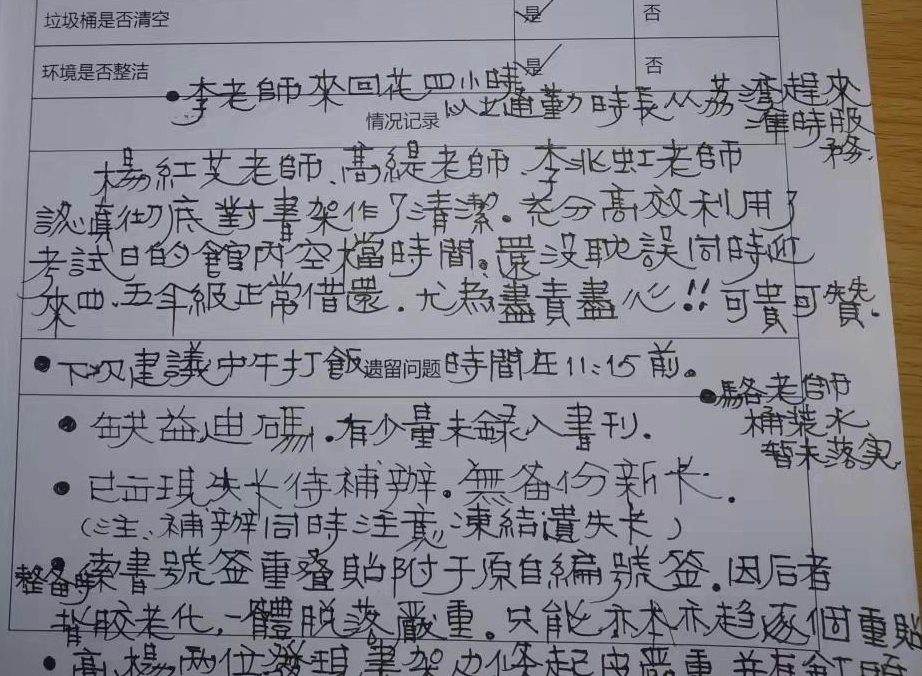 垃圾桶是否清空 是 否
环境是否整洁 是 否
•李老師來回花四小時
以上通勤時長从荔湾趕來
准時服
務.
情况记录
楊紅艾老師、高緹老師、李兆虹老師
認真彻底對書架作了清潔。充分高效利用了
考試日的館内空檔時間。還没耽誤同時迎
來四.五年級正常借還.尤為盡責盡心!!可貴可贊.
•下次建議中午打飯 遗留问题 時間在11:15前。
•駱老師
桶装水
暂未落实
•缺益迪碼.有少量未録入書刊.
•已出現失卡待補辦。無备份新卡.
(注、補辦同時注意凍結遺失卡)
•索書號签重叠貼附于原自編號签.因后者
整备时
背胶老化,一體脱落嚴重。只能亦本亦趋逐個重貼
•高.楊两位發現書架边條起皮嚴重.并在